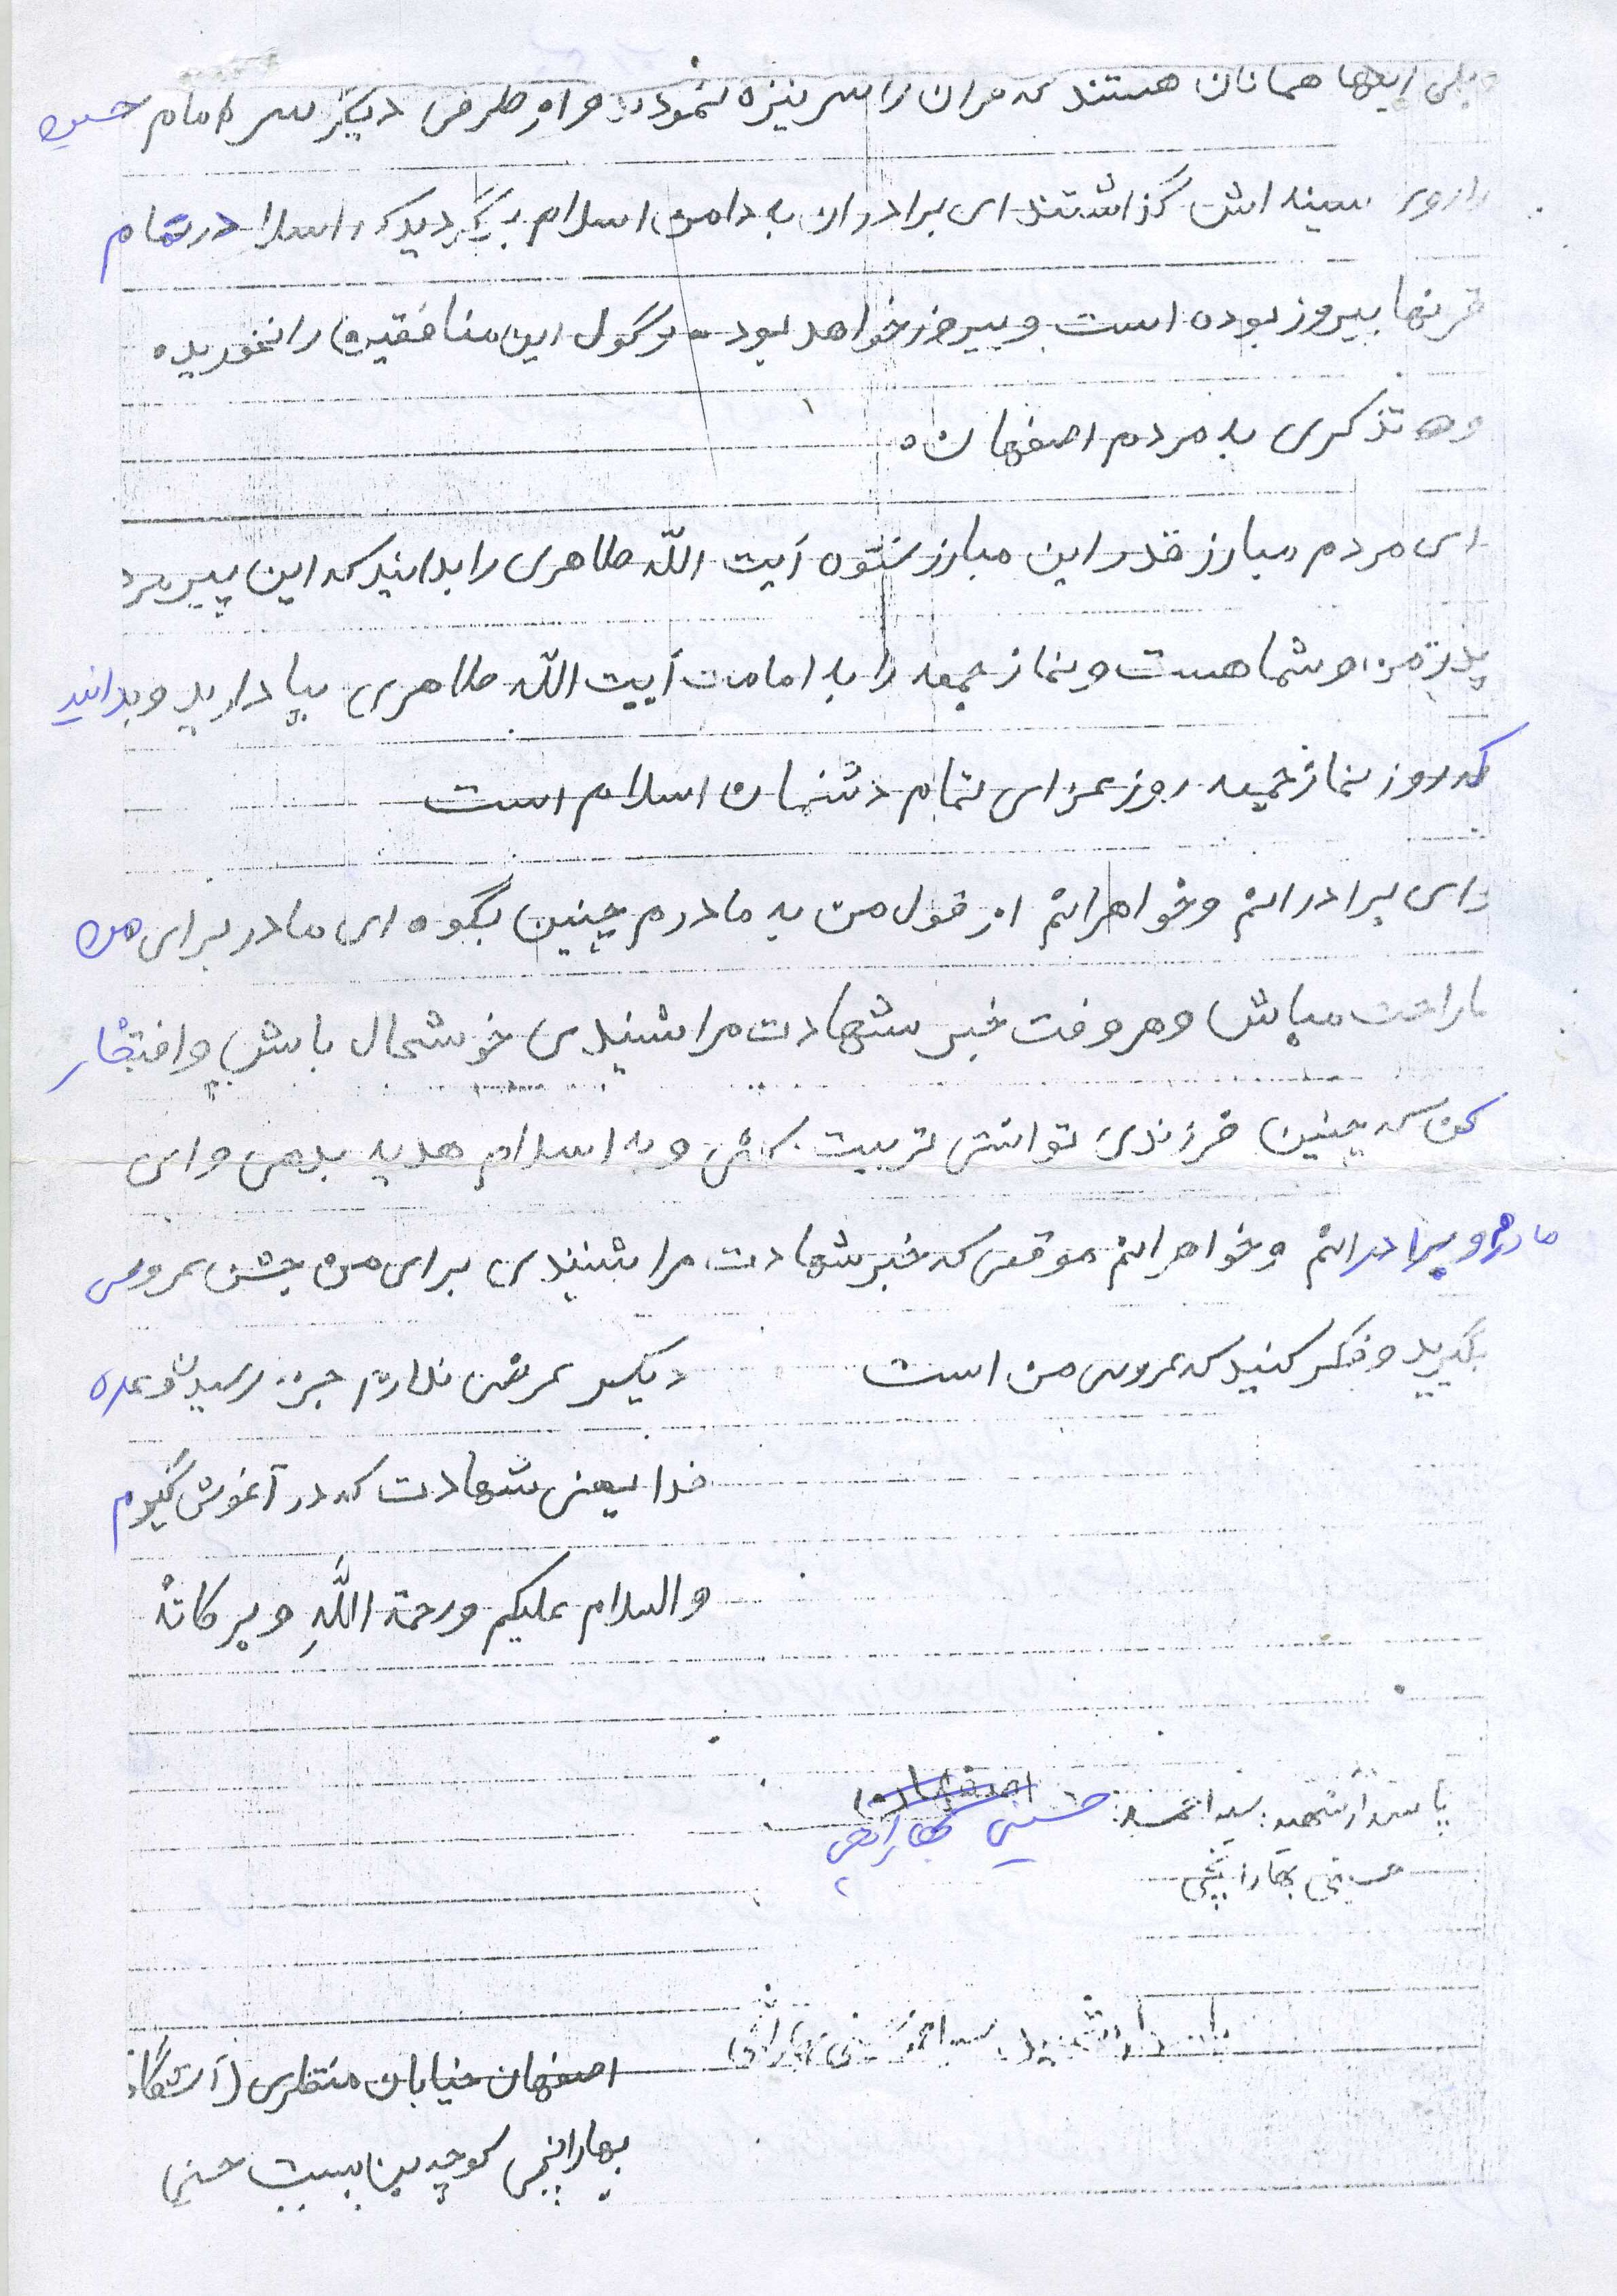 بلی اینها همانان هستند که قران را سر نیزه نمودند و از طرفی دیگر سر امام حسین
را روی سینه اش گذاشتند ای برادران به دامن اسلام برگردید که اسلام در تمام
قرنها پیروز بوده است و پیروز خواهد بود و گول این منافقین را نخورید
و تذکری به مردم اصفهان
ای مردم مبارز قدر این مبارز نستوه آیت الله طاهری را بدانید که این پیرمرد
پدر من و شما هست و نماز جمعه را به امامت آیت الله طاهری بپا دارید و بدانید
که روز نماز جمعه روز عزای تمام دشمنان اسلام است
و ای برادرانم و خواهرانم از قول من به مادرم چنین بگو ای مادر برای من
ناراحت مباش و هر وقت خبر شهادت مرا شنیدی خوشحال باش و افتخار
کن که چنین فرزندی توانستی تربیت کنی و به اسلام هدیه بدهی و ای
مادرم و برادرانم و خواهرانم موقعی که خبر شهادت مرا شنیدی برای من جشن عروسی
بگیرید و فکر کنید که عروسی من است
دیگر عرضی ندارم جز رسیدن وعده
خدا یعنی شهادت که در آغوش گیرم
والسلام علیکم ورحمة اللهِ وبرکاتهُ
پاسدار شهید: سید احمد: حسینی بهارانچی
حسینی بهارانچی
پاسدار شهید سید احمد حسینی بهارانچی
اصفهان خیابان منتظری (آتشگاه
بهارانچی کوچه بن بست حسینی